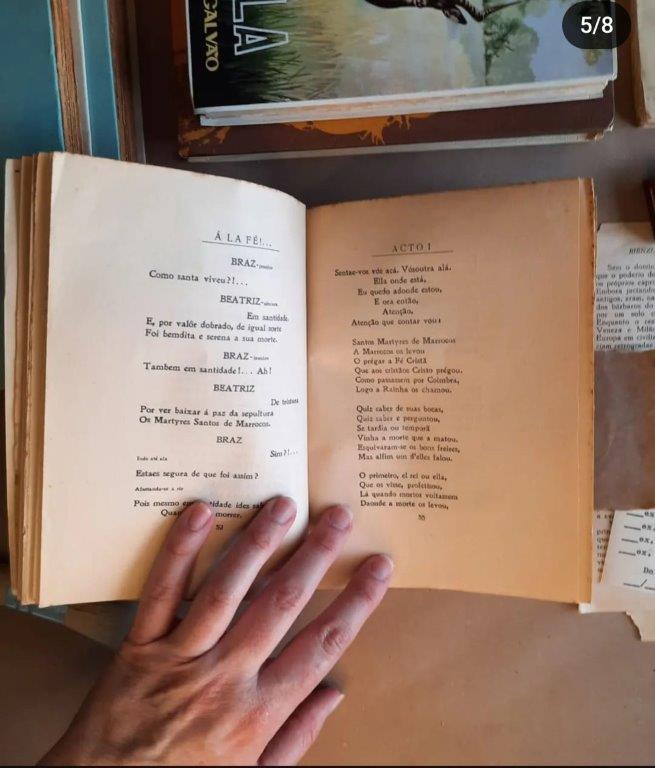 5/8
LA
GALVÃO
Á LA FÉ!...
BRAZ-
Como santa viveu?!...
BEATRIZ-
Em santidade.
E, por valôr dobrado, de igual sorte
Foi bemdita e serena a sua morte.
BRAZ-
Tambem em santidade!... Ah!
BEATRIZ
De tristura
Por ver baixar á paz da sepultura
Os Martyres Santos de Marrocos.
BRAZ
Sim?!...
Indo até ela
Estaes segura de que foi assim?
Afastando-a a rir
Pois mesmo em santidade ides
morrer.
52
ACTO I
Sentae-vos vós acá. Vósoutra alá.
Ella onde está,
Eu quedo adonde estou,
E ora então,
Atenção,
Atenção que contar vou:
Santos Martyres de Marrocos
A Marrocos os levou
O prégar a Fé Cristã
Que aos cristãos Cristo prégou.
Como passassem por Coimbra,
Logo a Rainha os chamou.
Quiz saber de suas bocas,
Quiz saber e perguntou,
Se tardia ou temporã
Vinha a morte que a matou.
Esquivaram-se os bons freires,
Mas alfim um d'elles falou.
O primeiro, el rei ou ella,
Que os visse, profetisou,
Lá quando mortos voltassem
Daonde a morte os levou,
RIENZI
Sem o domi
que o poderio d
os próprios capri
Embora
antigos, eram, na
dos bárbaros do
por um solo c
Enquanto o res
Veneza e Milã
Europa em civiliz
riam retrogradas
ox,
ox,
ox,
Do